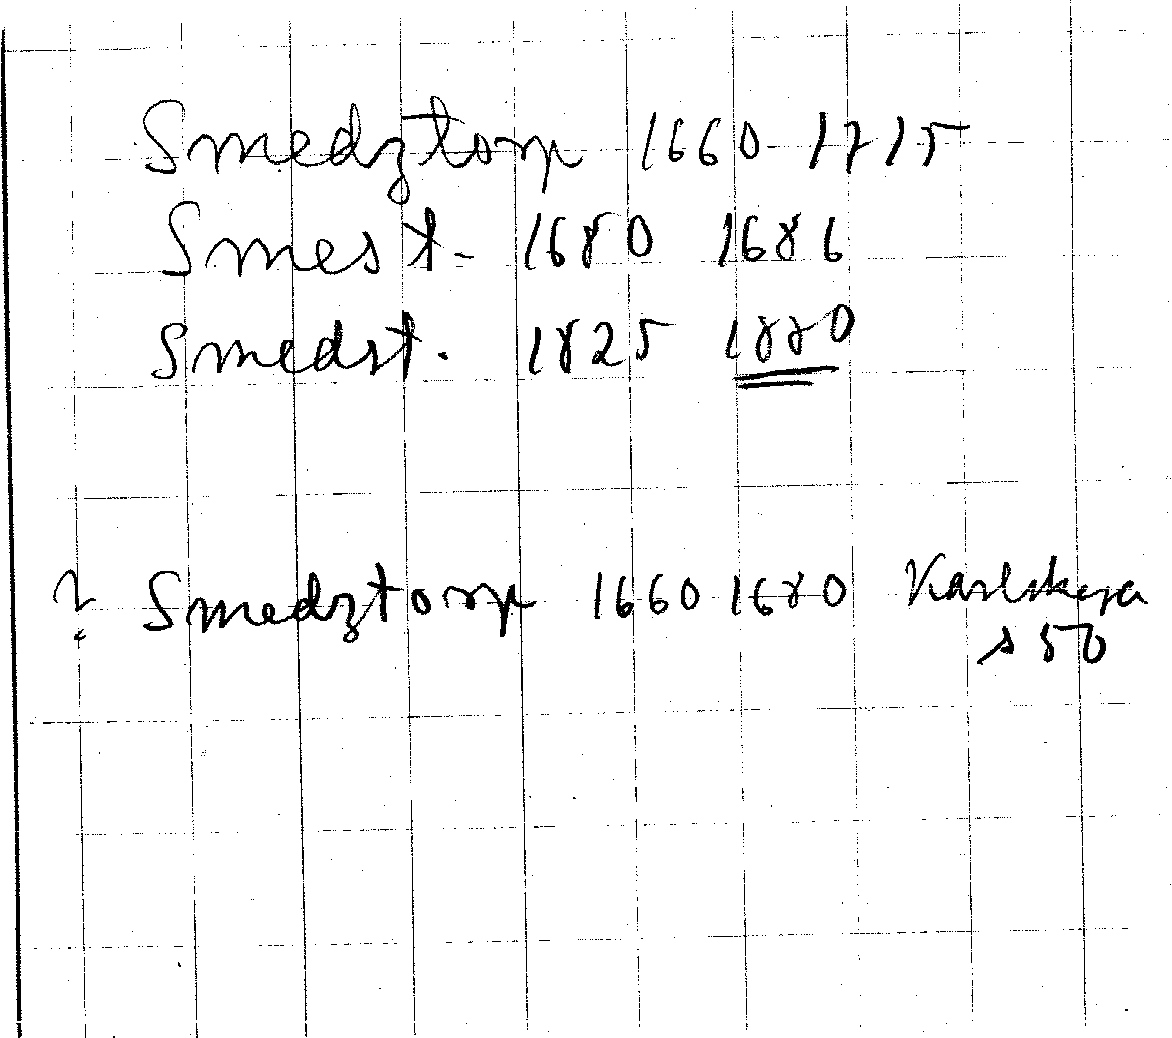 Smedztorp 1660 1715
Smest. 1680 1686
Smedst. 1825 1880
? Smedztorp 1660 1680 Karlskoga
s 50